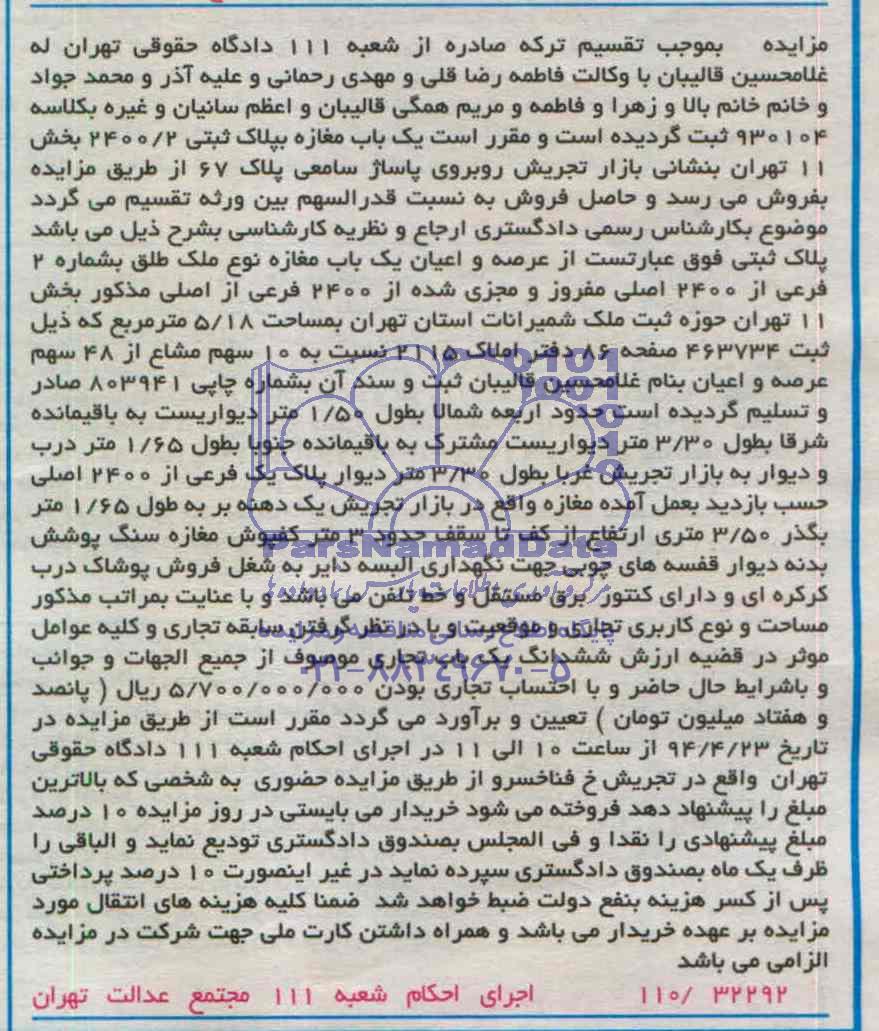 مزایده بموجب تقسیم ترکه صادره از شعبه ۱۱۱ دادگاه حقوقی تهران له
غلامحسین قالیبان با وکالت فاطمه رضا قلی و مهدی رحمانی و علیه آذر و محمد جواد
و خانم خانم بالا و زهرا و فاطمه و مریم همگی قالیبان و اعظم سانیان و غیره بکلاسه
۹۳۰۱۰۴ ثبت گردیده است و مقرر است یک باب مغازه بپلاک ثبتی ۲۴۰۰/۲ بخش
۱۱ تهران بنشانی بازار تجریش روبروی پاساژ سامعی پلاک ۶۷ از طریق مزایده
بفروش می رسد و حاصل فروش به نسبت قدرالسهم بین ورثه تقسیم می گردد
موضوع بکارشناس رسمی دادگستری ارجاع و نظریه کارشناسی بشرح ذیل می باشد
پلاک ثبتی فوق عبارتست از عرصه و اعیان یک باب مغازه نوع ملک طلق بشماره ۲
فرعی از ۲۴۰۰ اصلی مفروز و مجزی شده از ۲۴۰۰ فرعی از اصلی مذکور بخش
۱۱ تهران حوزه ثبت ملک شمیرانات استان تهران بمساحت ۵/۱۸ مترمربع که ذیل
ثبت ۴۶۳۷۳۴ صفحه ۸۶ دفتر املاک ۲۱۱۵ نسبت به ۱۰ سهم مشاع از ۴۸ سهم
عرصه و اعیان بنام غلامحسین قالیبان ثبت و سند آن بشماره چاپی ۸۰۳۹۴۱ صادر
و تسلیم گردیده است حدود اربعه شمالا بطول ۱/۵۰ متر دیواریست به باقیمانده
شرقا بطول ۳/۳۰ متر دیواریست مشترک به باقیمانده جنوبا بطول ۱/۶۵ متر درب
و دیوار به بازار تجریش غربا بطول ۳/۳۰ متر دیوار پلاک یک فرعی از ۲۴۰۰ اصلی
حسب بازدید بعمل آمده مغازه واقع در بازار تجریش یک دهنه بر به طول ۱/۶۵ متر
بگذر ۳/۵۰ متری ارتفاع از کف تا سقف حدود ۳ متر کفپوش مغازه سنگ پوشش
بدنه دیوار قفسه های چوبی جهت نگهداری البسه دایر به شغل فروش پوشاک درب
کرکره ای و دارای کنتور برق مستقل و خط تلفن می باشد و با عنایت بمراتب مذکور
مساحت و نوع کاربری تجاری و موقعیت و با در نظر گرفتن سابقه تجاری و کلیه عوامل
موثر در قضیه ارزش ششدانگ یک باب تجاری موصوف از جمیع الجهات و جوانب
و باشرایط حال حاضر و با احتساب تجاری بودن ۵/۷۰۰/۰۰۰/۰۰۰ ریال ( پانصد
و هفتاد میلیون تومان ) تعیین و برآورد می گردد مقرر است از طریق مزایده در
تاریخ ۹۴/۴/۲۳ از ساعت ۱۰ الی ۱۱ در اجرای احکام شعبه ۱۱۱ دادگاه حقوقی
تهران واقع در تجریش خ فناخسرو از طریق مزایده حضوری به شخصی که بالاترین
مبلغ را پیشنهاد دهد فروخته می شود خریدار می بایستی در روز مزایده ۱۰ درصد
مبلغ پیشنهادی را نقدا و فی المجلس بصندوق دادگستری تودیع نماید و الباقی را
ظرف یک ماه بصندوق دادگستری سپرده نماید در غیر اینصورت ۱۰ درصد پرداختی
پس از کسر هزینه بنفع دولت ضبط خواهد شد ضمنا کلیه هزینه های انتقال مورد
مزایده بر عهده خریدار می باشد و همراه داشتن کارت ملی جهت شرکت در مزایده
الزامی می باشد
۱۱۰/ ۳۲۲۹۲ اجرای احکام شعبه ۱۱۱ مجتمع عدالت تهران
ParsNamadData
پایگاه اطلاع رسانی مناقصه و مزایده
۰۲۱-۸۸۳۴۹۶۷۰-۵